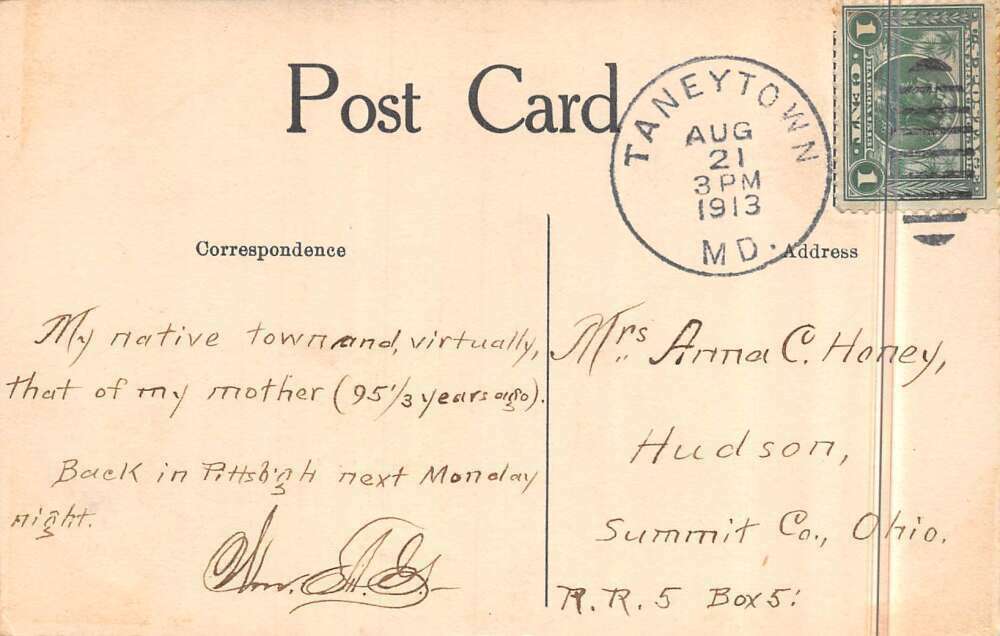 Post Card
TANEYTOWN
AUG
21
3 PM
1913
MD.
1 CENT 1
Correspondence
Address
My native town and, virtually,
that of my mother (95 1/3 years ago).
Back in Pittsb'gh next Monday
night.
Mrs Anna C. Honey,
Hudson,
Summit Co., Ohio.
R. R. 5 Box 5.